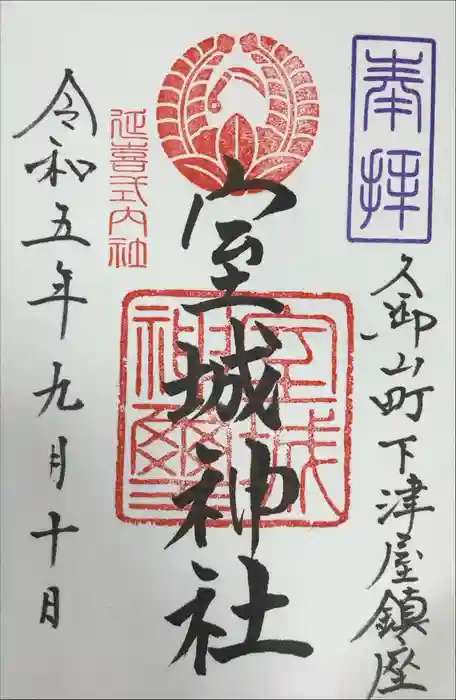 奉拝
久御山町下津屋鎮座
室城神社
室城神璽
延喜式内社
令和五年九月十日